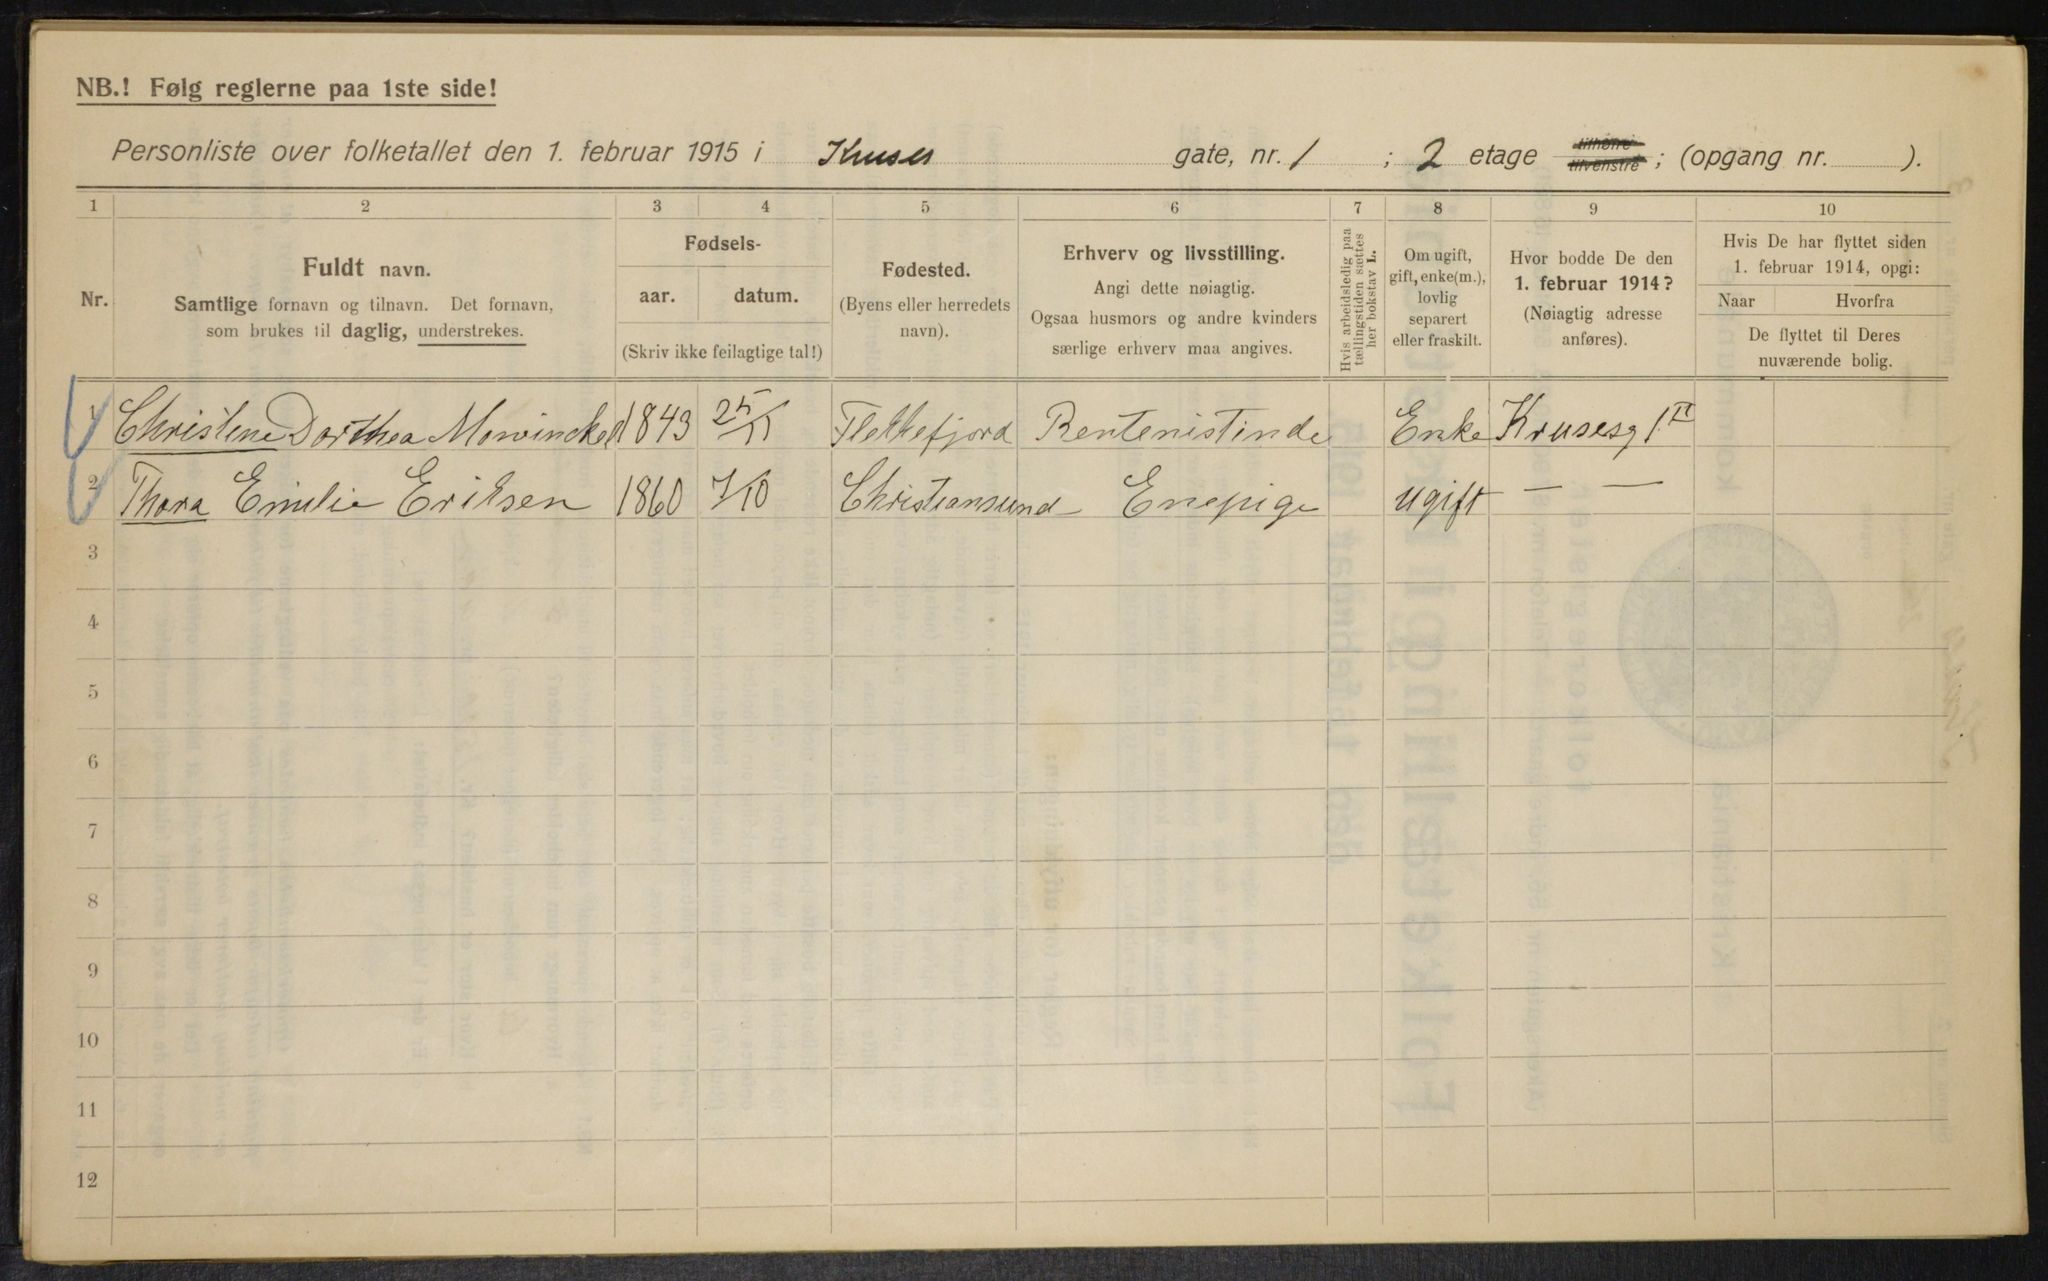 NB.! Følg reglerne paa 1ste side!
Personliste over folketallet den 1. februar 1915 i Kruses gate, nr. 1 ; 2 etage tilhøire tilvenstre ; (opgang nr. ).
1 2 3 4 5 6 7 8 9 10
Nr.
Fuldt navn.
Samtlige fornavn og tilnavn. Det fornavn,
som brukes til daglig, understrekes.
Fødsels-
aar. datum.
(Skriv ikke feilagtige tal!)
Fødested.
(Byens eller herredets
navn).
Erhverv og livsstilling.
Angi dette nøiagtig.
Ogsaa husmors og andre kvinders
særlige erhverv maa angives.
Hvis arbeidsledig paa
tællingstiden sættes
her bokstav L.
Om ugift,
gift, enke(m.),
lovlig
separert
eller fraskilt.
Hvor bodde De den
1. februar 1914?
(Nøiagtig adresse
anføres).
Hvis De har flyttet siden
1. februar 1914, opgi:
Naar Hvorfra
De flyttet til Deres
nuværende bolig.
1 Christine Dorthea Mowinckel 1843 25/11 Flekkefjord Rentenistinde Enke Krusesg 1 II
2 Thora Emilie Eriksen 1860 7/10 Christiansund Enepige ugift — —
3
4
5
6
7
8
9
10
11
12